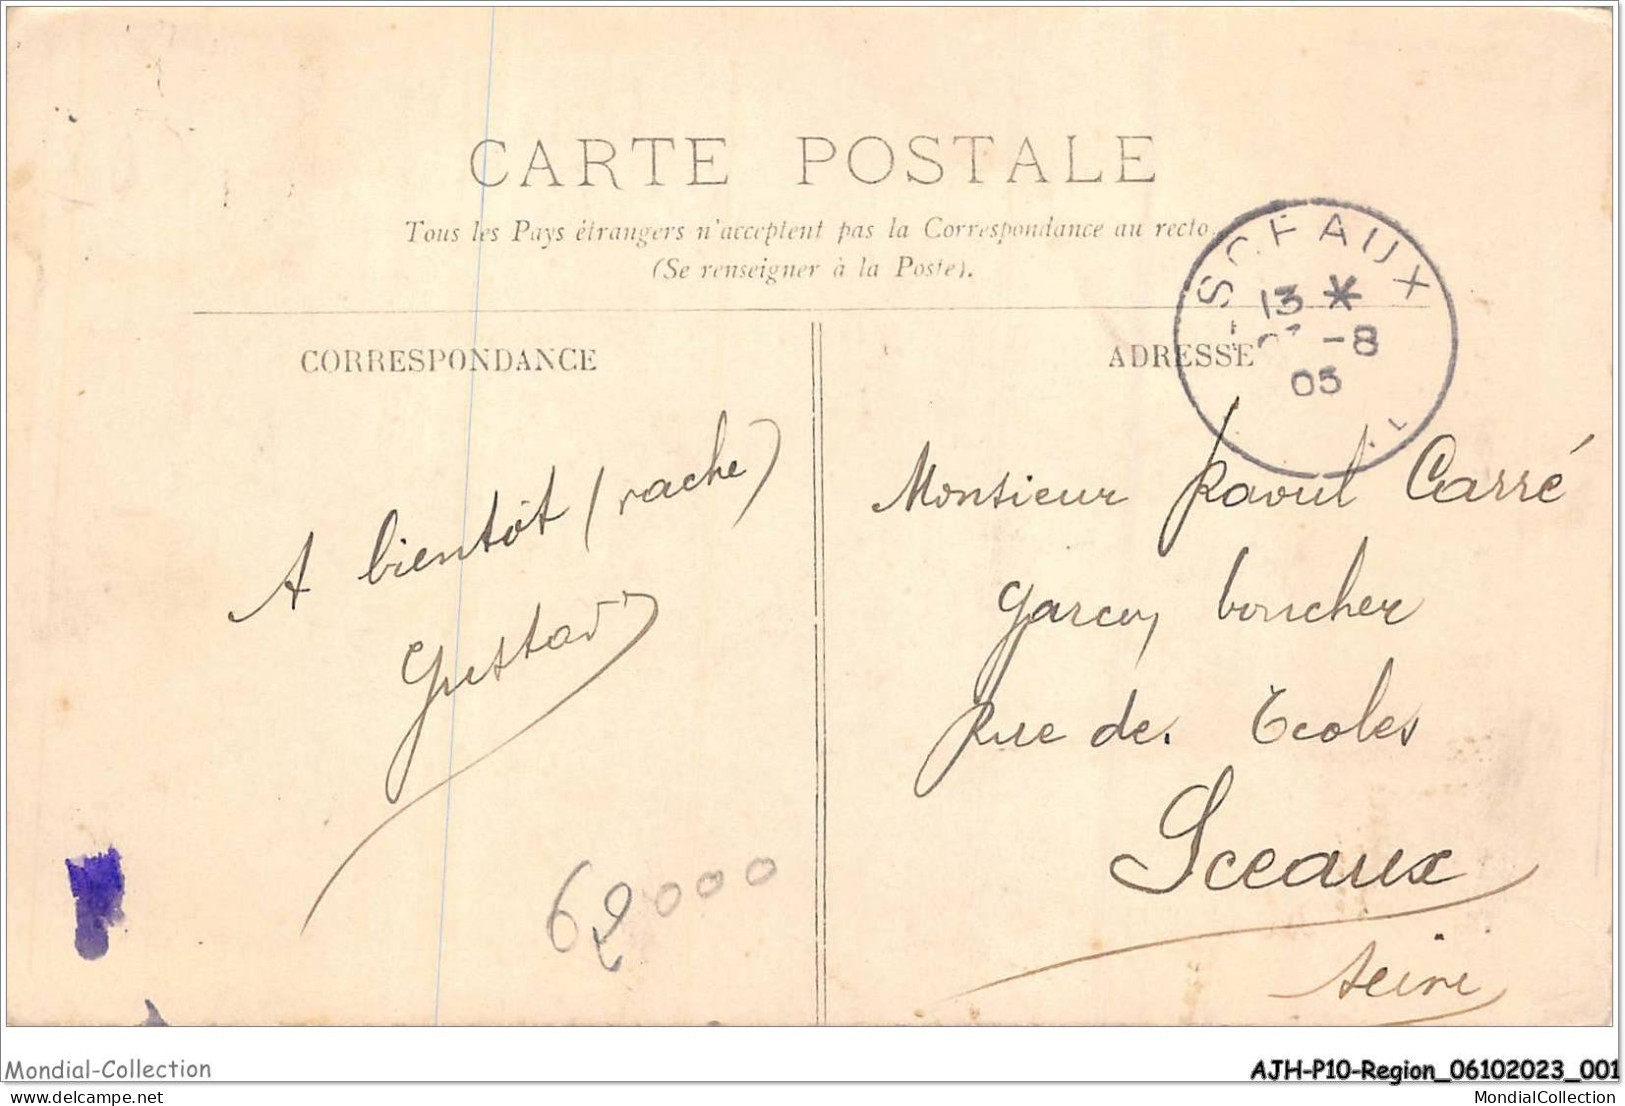 CARTE POSTALE
Tous les Pays étrangers n'acceptent pas la Correspondance au recto.
(Se renseigner à la Poste).
SCEAUX
13 *
-8
05
CORRESPONDANCE
ADRESSE
A bientôt (vache)
Gustav
Monsieur Raoul Carré
garçon boucher
Rue des Ecoles
Sceaux
Seine
62000
Mondial-Collection
AJH-P10-Region_06102023_001
MondialCollection
MondialCollection